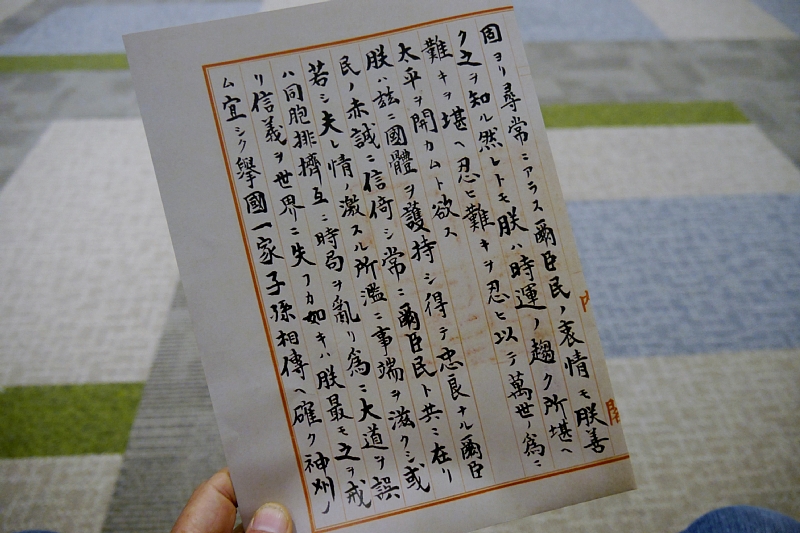 固ヨリ尋常ニアラス爾臣民ノ衷情モ朕善
ク之ヲ知ル然レトモ朕ハ時運ノ趨ク所堪ヘ
難キヲ堪ヘ忍ヒ難キヲ忍ヒ以テ萬世ノ爲ニ
太平ヲ開カムト欲ス
朕ハ茲ニ國體ヲ護持シ得テ忠良ナル爾臣
民ノ赤誠ニ信倚シ常ニ爾臣民ト共ニ在リ
若シ夫レ情ノ激スル所濫ニ事端ヲ滋クシ或
ハ同胞排擠互ニ時局ヲ亂リ爲ニ大道ヲ誤
リ信義ヲ世界ニ失フカ如キハ朕最モ之ヲ戒
ム宜シク擧國一家子孫相傳ヘ確ク神州ノ